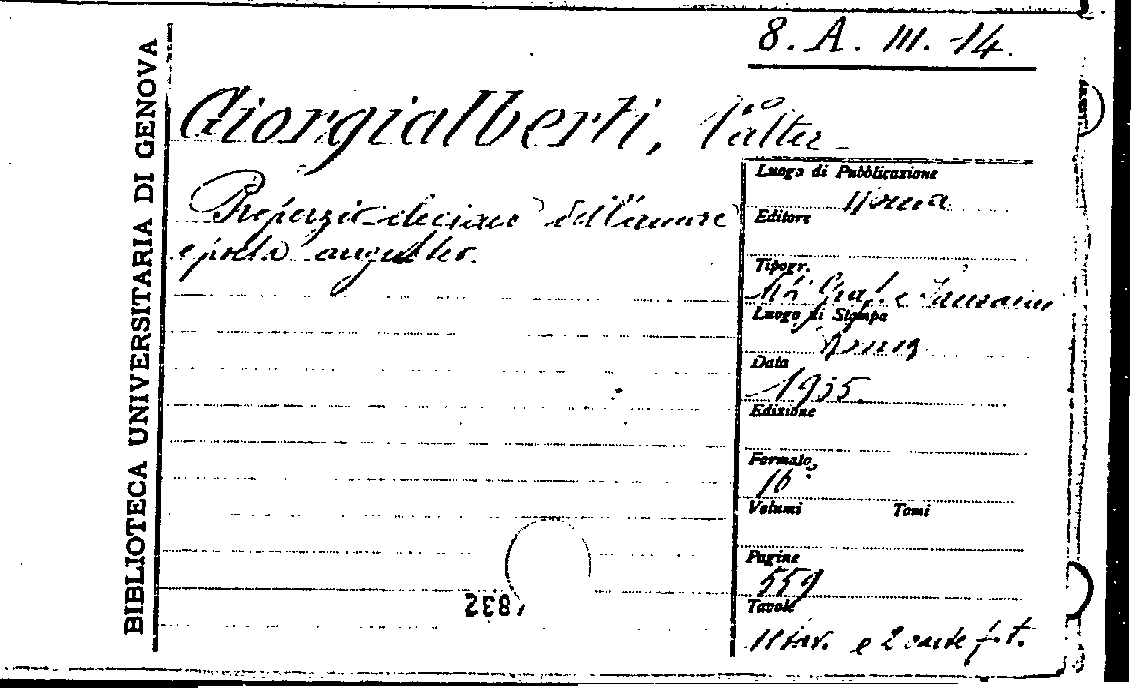 8. A. III. 14.
BIBLIOTECA UNIVERSITARIA DI GENOVA
Giorgialberti, Valter
Properzio
e poeta
Luogo di Pubblicazione
Roma
Editore
Tipogr.
Graf.
Luogo di Stampa
Roma
Data
1935
Edizione
Formato
16°
Volumi Tomi
Pagine
559
Tavole
11 tav. e 2 carte f. t.
832